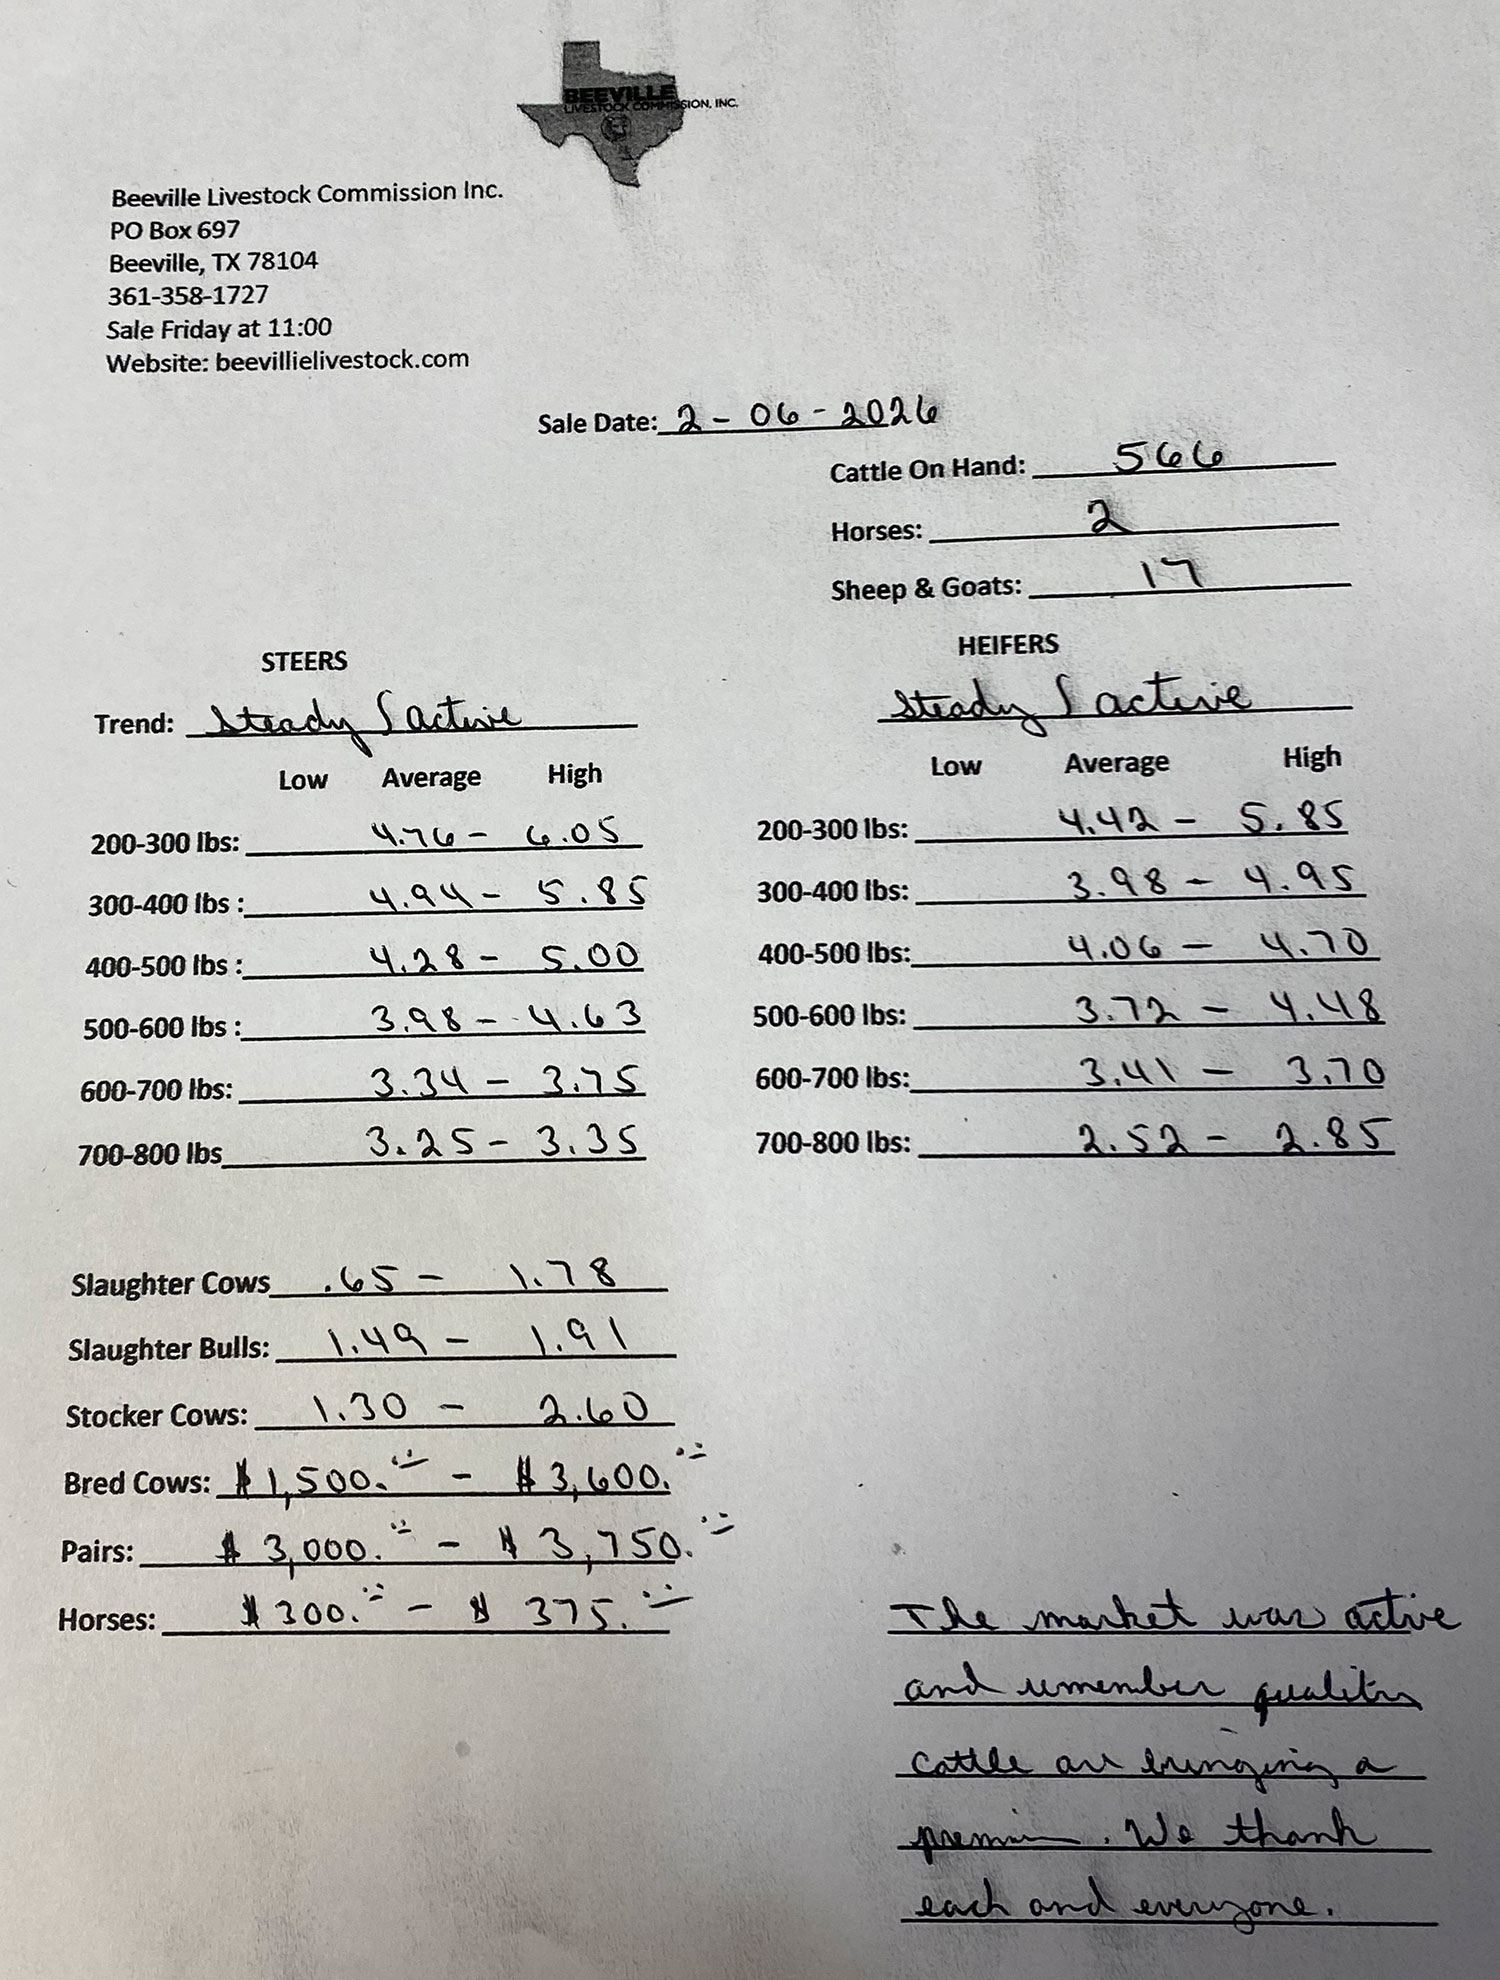 BEEVILLE
LIVESTOCK COMMISSION, INC.
Beeville Livestock Commission Inc.
PO Box 697
Beeville, TX 78104
361-358-1727
Sale Friday at 11:00
Website: beevillielivestock.com
Sale Date: 2-06-2026
Cattle On Hand: 566
Horses: 2
Sheep & Goats: 17
STEERS
Trend: Steady / active
Low Average High
200-300 lbs: 4.76 - 6.05
300-400 lbs : 4.94 - 5.85
400-500 lbs : 4.28 - 5.00
500-600 lbs : 3.98 - 4.63
600-700 lbs: 3.34 - 3.75
700-800 lbs 3.25 - 3.35
HEIFERS
Steady / active
Low Average High
200-300 lbs: 4.42 - 5.85
300-400 lbs: 3.98 - 4.95
400-500 lbs: 4.06 - 4.70
500-600 lbs: 3.72 - 4.48
600-700 lbs: 3.41 - 3.70
700-800 lbs: 2.52 - 2.85
Slaughter Cows .65 - 1.78
Slaughter Bulls: 1.49 - 1.91
Stocker Cows: 1.30 - 2.60
Bred Cows: $1,500. - $3,600.
Pairs: $3,000. - $3,750.
Horses: $300. - $375.
The market was active
and remember quality
cattle are bringing a
premium. We thank
each and everyone.